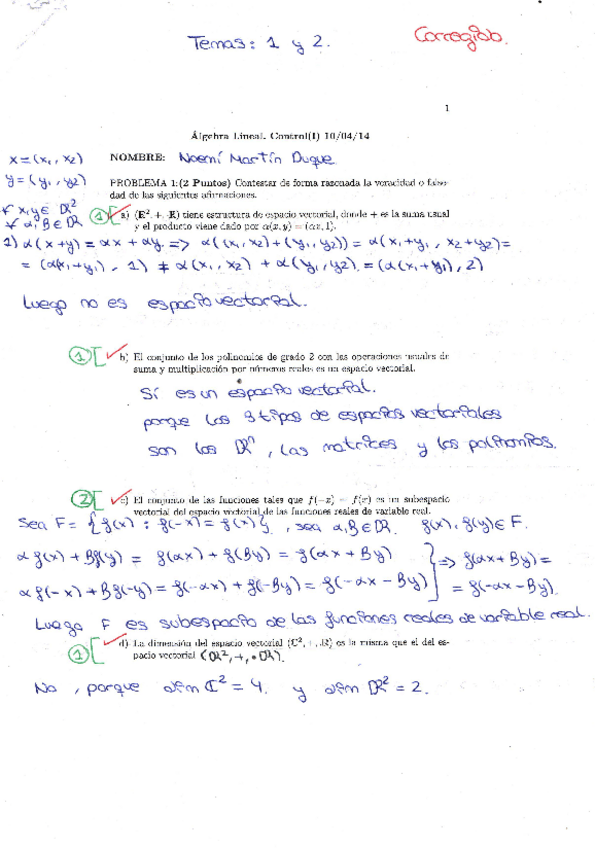 Temas: 1 y 2.
Corregido.
1
Álgebra Lineal. Control(I) 10/04/14
x=(x₁, x₂)
NOMBRE: Noemí Martín Duque
y=(y₁, y₂)
PROBLEMA 1:(2 Puntos) Contestar de forma razonada la veracidad o false-
dad de las siguientes afirmaciones.
∀ x,y ∈ ℝ²
∀ α,β ∈ ℝ
① a) (ℝ², +, ·ℝ) tiene estructura de espacio vectorial, donde + es la suma usual
y el producto viene dado por α(x, y) = (αx, 1).
1) α(x+y) = αx + αy => α((x₁, x₂)+(y₁, y₂)) = α(x₁+y₁, x₂+y₂) =
= (α(x₁+y₁), 1) ≠ α(x₁, x₂) + α(y₁, y₂) = (α(x₁+y₁), 2)
Luego no es espacio vectorial.
① b) El conjunto de los polinomios de grado 2 con las operaciones usuales de
suma y multiplicación por números reales es un espacio vectorial.
Sí es un espacio vectorial.
porque los 3 tipos de espacios vectoriales
son los ℝⁿ, las matrices y los polinomios.
② c) El conjunto de las funciones tales que f(−x) = f(x) es un subespacio
vectorial del espacio vectorial de las funciones reales de variable real.
Sea F = {f(x) : f(-x) = f(x)}, sea α,β ∈ ℝ f(x), f(y) ∈ F.
αf(x) + βf(y) = f(αx) + f(βy) = f(αx + βy)
αf(-x) + βf(-y) = f(-αx) + f(-βy) = f(-αx - βy)
} => f(αx + βy) =
= f(-αx - βy).
Luego F es subespacio de las funciones reales de variable real.
① d) La dimensión del espacio vectorial (ℂ², +, ·ℝ) es la misma que el del es-
pacio vectorial (ℝ², +, ·ℝ).
No, porque dim ℂ² = 4. y dim ℝ² = 2.